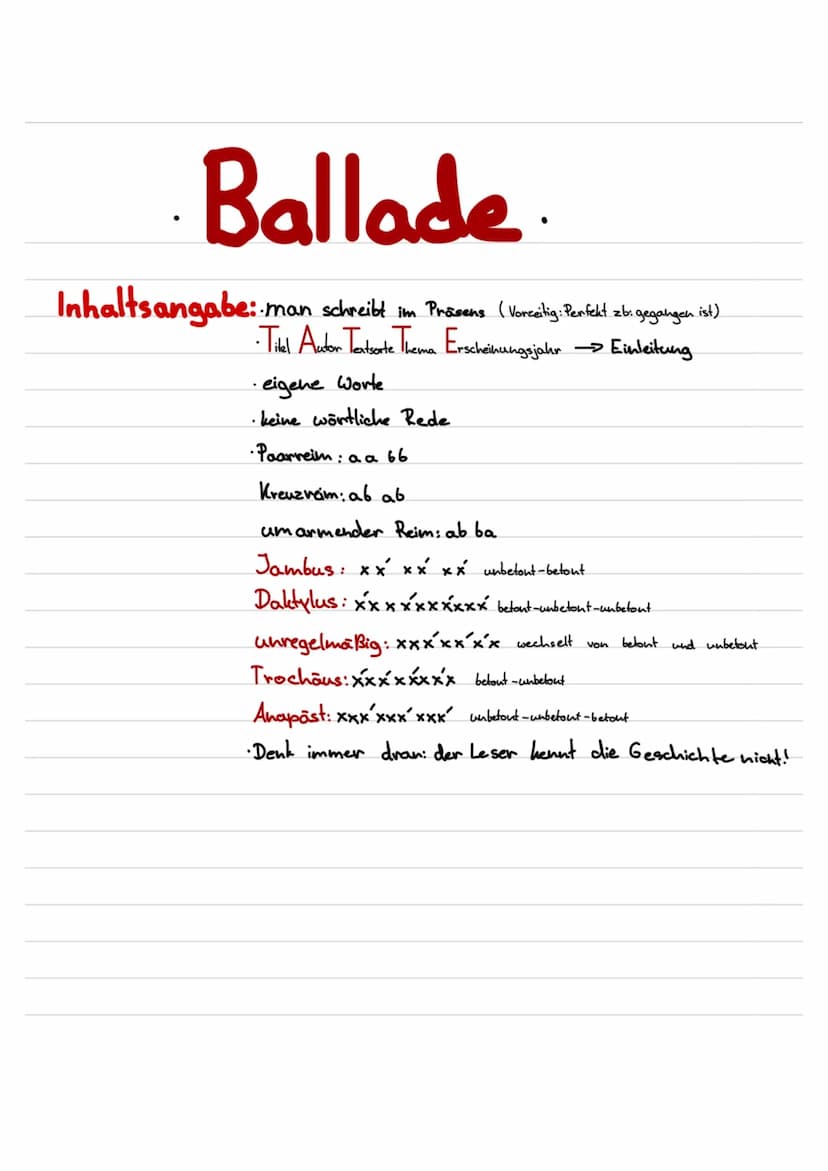 · Ballade ·
Inhaltsangabe: · man schreibt im Präsens (Vorzeitig: Perfekt zb. gegangen ist)
· Titel Autor Textsorte Thema Erscheinungsjahr → Einleitung
· eigene Worte
· keine wörtliche Rede
· Paarreim: aa bb
Kreuzreim: ab ab
umarmender Reim: ab ba
Jambus: xx́ xx́ xx́ unbetont-betont
Daktylus: x́xx x́xx x́xx betont-unbetont-unbetont
unregelmäßig: xxx́xx́x́x wechselt von betont und unbetont
Trochäus: x́xx́xx́xx́x betont-unbetont
Anapäst: xxx́xxx́xxx́ unbetont-unbetont-betont
· Denk immer dran: der Leser kennt die Geschichte nicht!